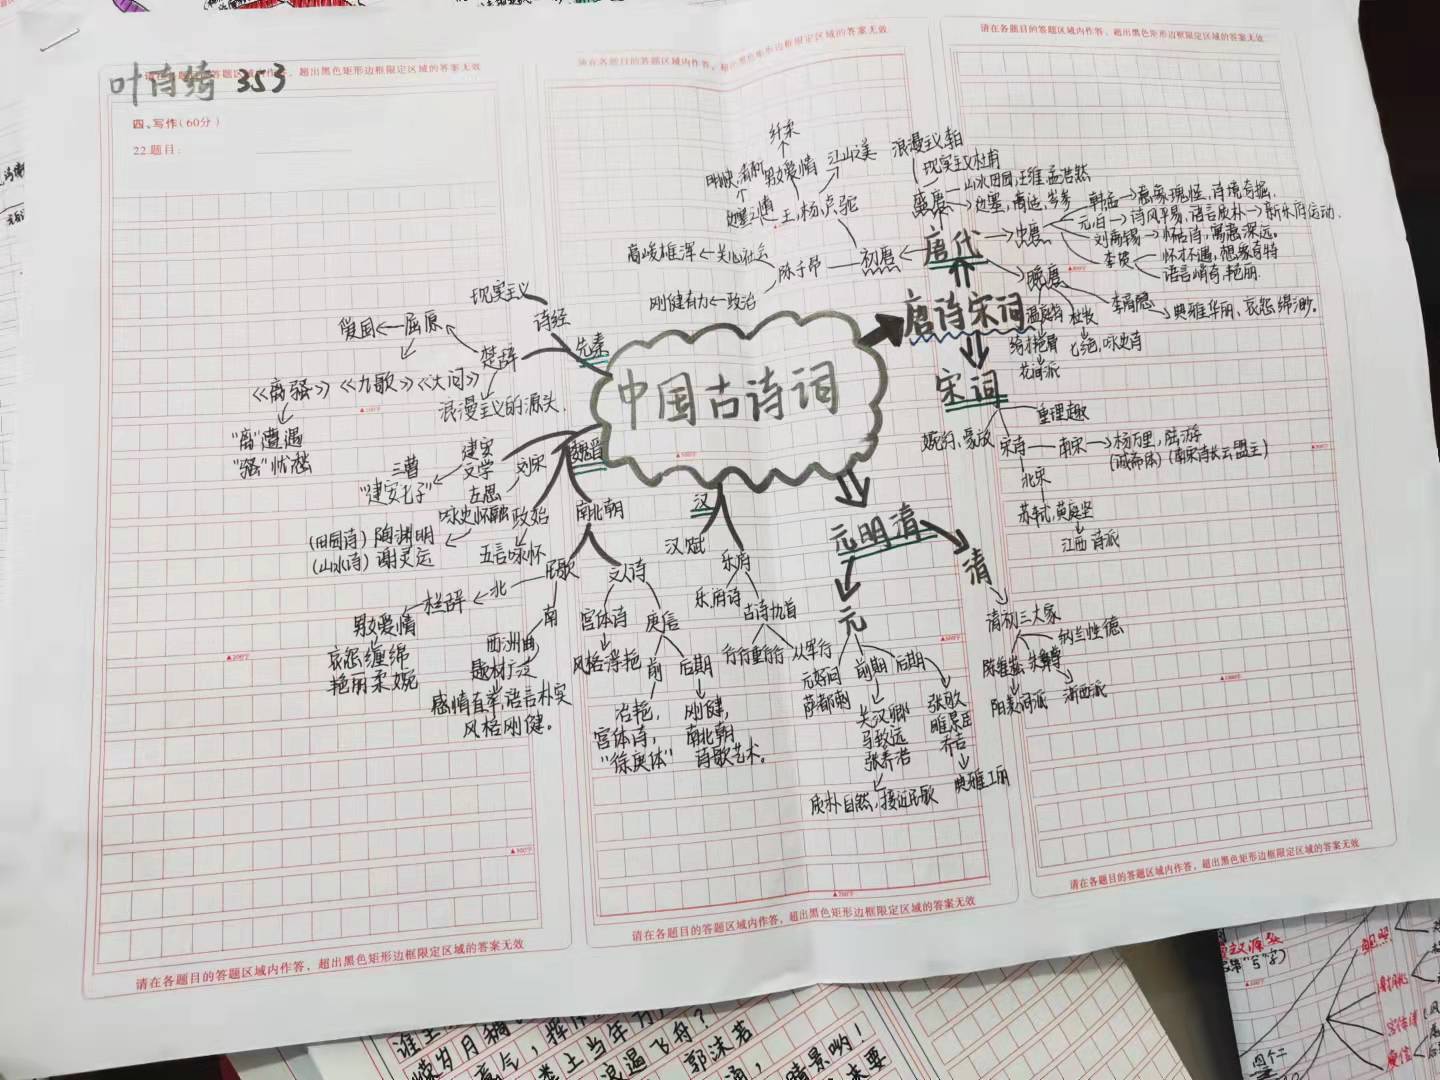 叶诗绮 353
请在各题目的答题区域内作答，超出黑色矩形边框限定区域的答案无效
四、写作（60分）
22.题目：
请在各题目的答题区域内作答，超出黑色矩形边框限定区域的答案无效
请在各题目的答题区域内作答，超出黑色矩形边框限定区域的答案无效
中国古诗词
先秦
诗经
现实主义
楚辞
屈原
爱国
《离骚》《九歌》《天问》
浪漫主义的源头.
"离"遭遇
"骚"忧愁
魏晋
建安
文学
三曹
"建安七子"
左思
咏史怀
刘宋
政始
五言咏怀
(田园诗) 陶渊明
(山水诗) 谢灵运
南北朝
民歌
北
男女爱情
哀怨缠绵
艳丽柔婉
南
西洲曲
题材广泛
感情直率,语言朴实
风格刚健。
文人诗
宫体诗
风格浮艳
庾信
前
后期
宫体诗,
"徐庾体"
刚健,
南北朝
诗歌艺术。
汉
汉赋
乐府
乐府诗
古诗九首
行行重行行
从军行
唐诗宋词
唐代
初唐
王,杨,卢,骆
江山之美
男女爱情
纤柔
明快,清新
陈子昂
关心社会
高峻雄浑
政治
刚健有力
盛唐
浪漫主义,李白
现实主义杜甫
山水田园,王维,孟浩然
边塞,高适,岑参
中唐
韩孟→意象瑰怪,诗境奇掘.
元,白→诗风平易,语言质朴→新乐府运动.
刘禹锡→怀古诗,寓意深远。
李贺
怀才不遇,想象奇特
语言峭奇,艳丽.
晚唐
温庭筠
绮材艳骨
花间派
杜牧
七绝,咏史诗
李商隐
典雅华丽、哀怨绵渺。
宋词
婉约,豪放
重理趣
宋诗
南宋
杨万里, 陆游
(诚斋体) (南宋诗坛盟主)
北宋
苏轼,黄庭坚
江西诗派
元明清
元
元好问
萨都剌
前期
关汉卿
马致远
张养浩
质朴自然,接近民歌
后期
张可久
睢景臣
乔吉
典雅工丽
清
清初三大家
纳兰性德
陈维崧
朱彝尊
阳羡词派
浙西派
请在各题目的答题区域内作答，超出黑色矩形边框限定区域的答案无效
请在各题目的答题区域内作答，超出黑色矩形边框限定区域的答案无效
请在各题目的答题区域内作答，超出黑色矩形边框限定区域的答案无效
郭沫若
宫体诗
庾信